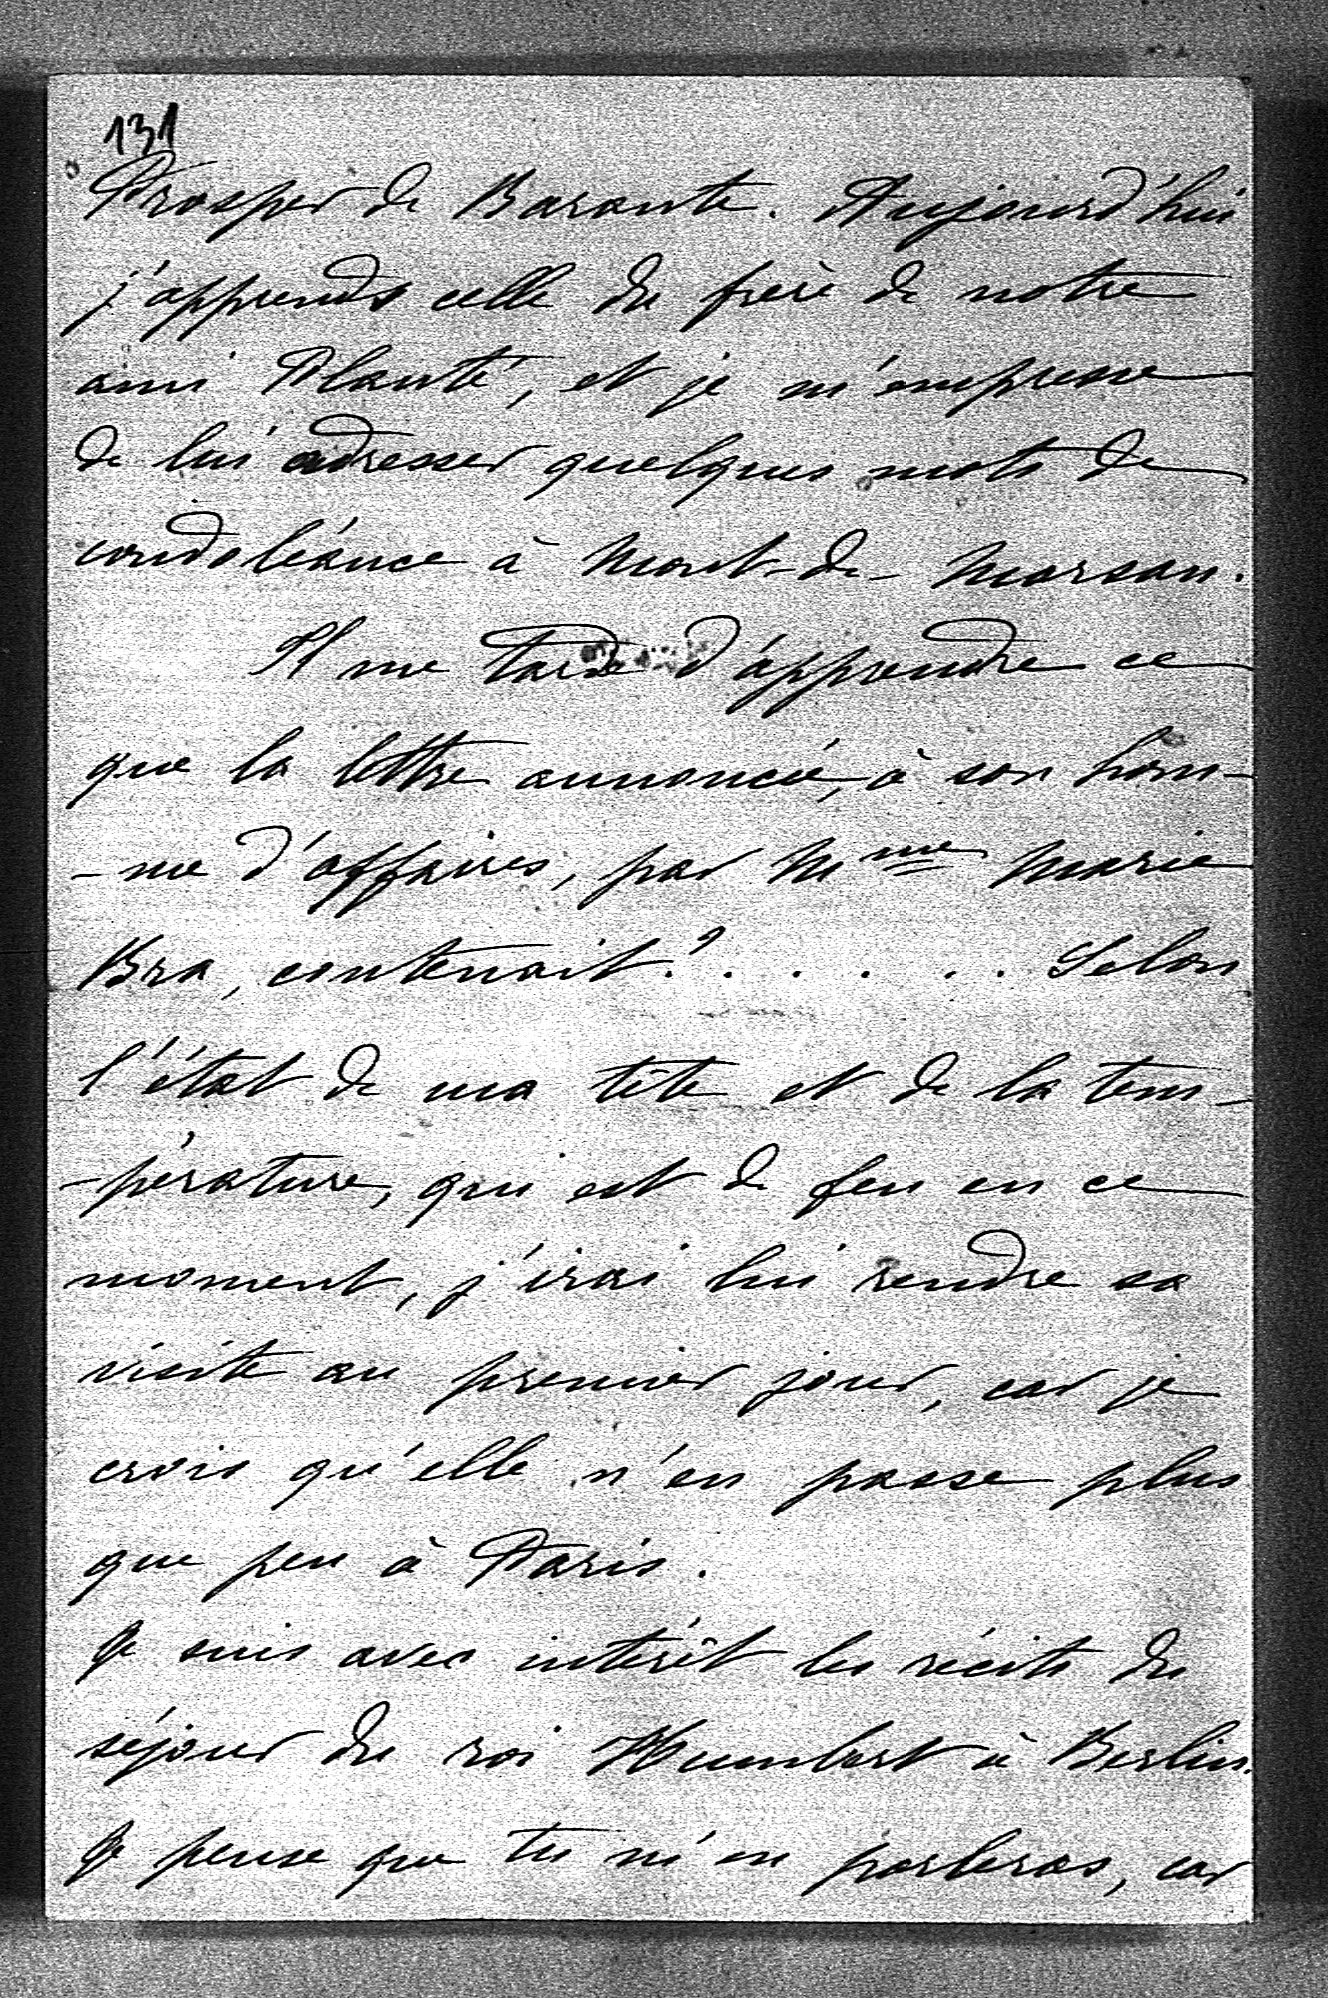 131
Prosper de Barante. Aujourd'hui
j'apprends celle du frère de notre
ami Planté, et je m'empresse
de lui adresser quelques mots de
condoléance à Mont-de-Marsan.
Il me tarde d'apprendre ce
que la lettre annoncée, à son hom-
-me d'affaires, par Mme Marie
Bra, contenait? . . . . . Selon
l'état de ma tête et de la tem-
-pérature, qui est de feu en ce
moment, j'irai lui rendre sa
visite au premier jour, car je
crois qu'elle n'en passe plus
que peu à Paris.
Je suis avec intérêt les récits du
séjour du roi Humbert à Berlin.
Je pense que tu m'en parleras, car